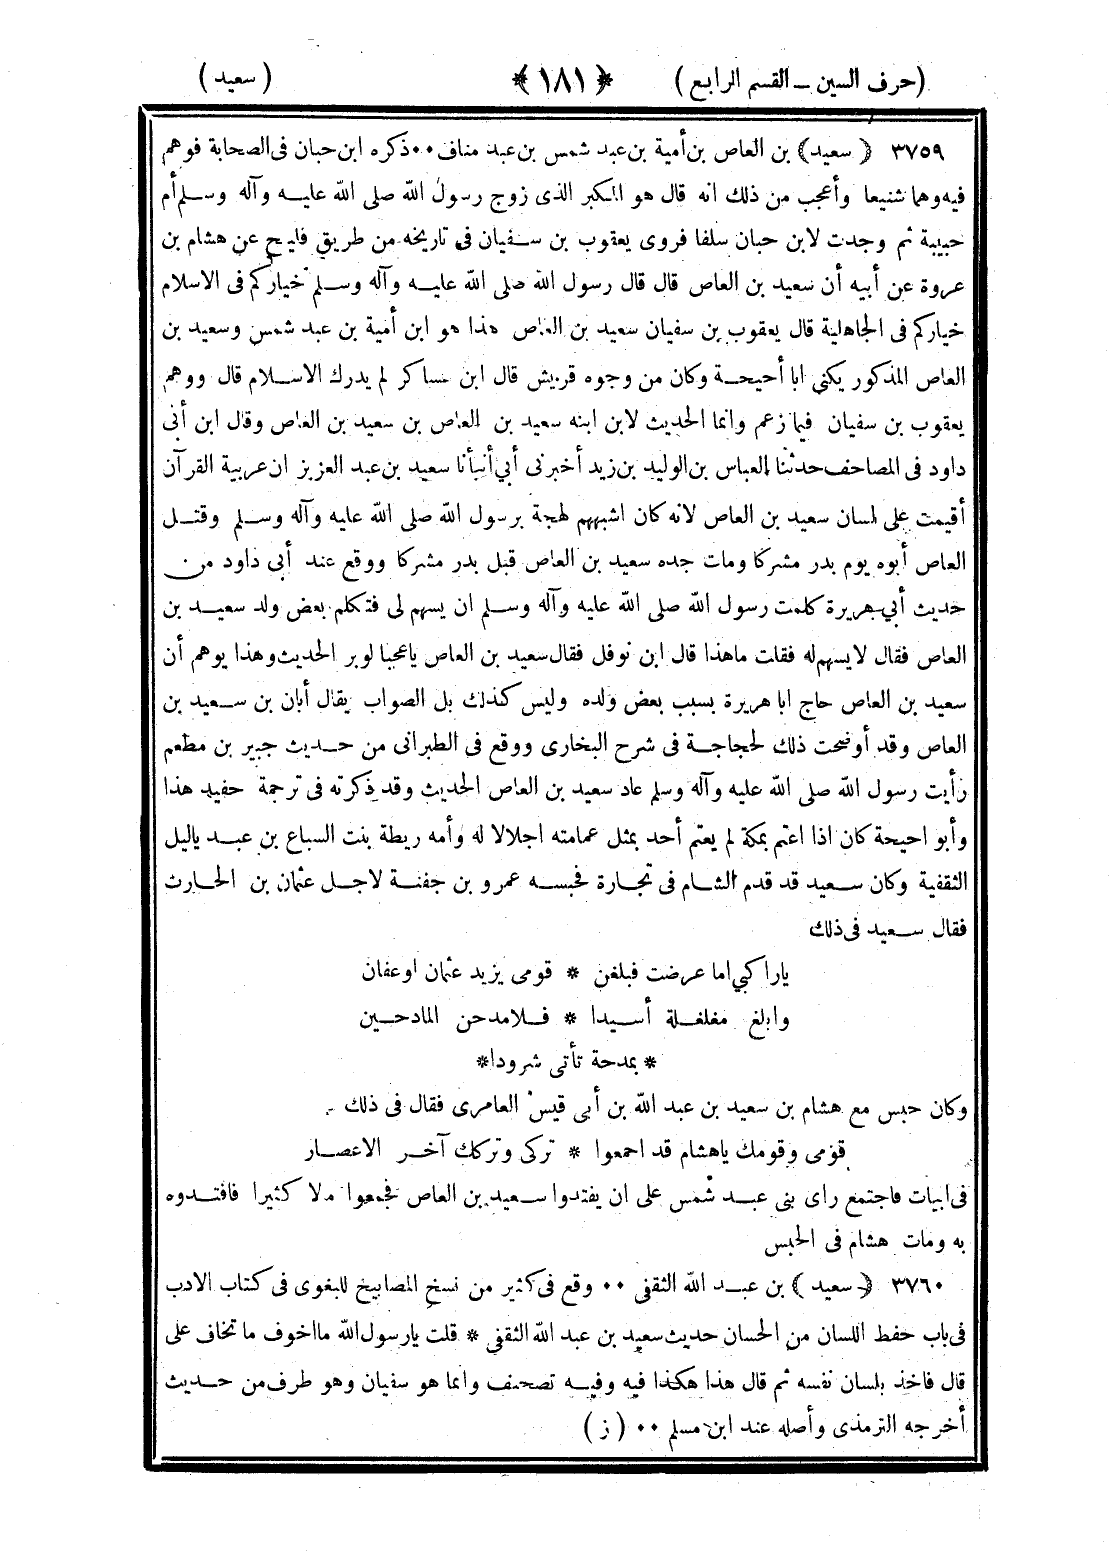 (حرف السين ــ القسم الرابع) ﴿١٨١﴾ (سعيد)
٣٧٥٩ ﴿سعيد﴾ بن العاص بن أمية بن عبد شمس بن عبد مناف ٠٠ ذكره ابن حبان فى الصحابة فوهم
فيه وهما شنيعا وأعجب من ذلك انه قال هو المكبر الذى زوج رسول الله صلى الله عليه وآله وسلم أم
حبيبة ثم وجدت لابن حبان سلفا فروى يعقوب بن سفيان فى تاريخه من طريق فليح عن هشام بن
عروة عن أبيه أن سعيد بن العاص قال قال رسول الله صلى الله عليه وآله وسلم خياركم فى الاسلام
خياركم فى الجاهلية قال يعقوب بن سفيان سعيد بن العاص هذا هو ابن أمية بن عبد شمس وسعيد بن
العاص المذكور يكنى ابا أحيحة وكان من وجوه قريش قال ابن عساكر لم يدرك الاسلام قال ووهم
يعقوب بن سفيان فيما زعم وانما الحديث لابن ابنه سعيد بن العاص بن سعيد بن العاص وقال ابن أبى
داود فى المصاحف حدثنا العباس بن الوليد بن زيد أخبرنى أبي أنبأنا سعيد بن عبد العزيز ان عربية القرآن
أقيمت على لسان سعيد بن العاص لانه كان اشبههم لهجة برسول الله صلى الله عليه وآله وسلم وقتل
العاص أبوه يوم بدر مشركا ومات جده سعيد بن العاص قبل بدر مشركا ووقع عند أبى داود من
حديث أبي هريرة كلمت رسول الله صلى الله عليه وآله وسلم ان يسهم لى فتكلم بعض ولد سعيد بن
العاص فقال لا يسهم له فقلت ماهذا قال ابن نوفل فقال سعيد بن العاص ياعجبا لوبر الحديث وهذا يوهم أن
سعيد بن العاص حاج ابا هريرة بسبب بعض ولده وليس كذلك بل الصواب يقال أبان بن سعيد بن
العاص وقد أوضحت ذلك لحجاجة فى شرح البخارى ووقع فى الطبرانى من حديث جبير بن مطعم
رأيت رسول الله صلى الله عليه وآله وسلم عاد سعيد بن العاص الحديث وقد ذكرته فى ترجمة حفيد هذا
وأبو احيحة كان اذا اعتم بمكة لم يعتم أحد بمثل عمامته اجلالا له وأمه ريطة بنت السباع بن عبد ياليل
الثقفية وكان سعيد قد قدم الشام فى تجارة فحبسه عمرو بن جفنة لاجل عثمان بن الحارث
فقال سعيد فى ذلك
ياراكبي اما عرضت فبلغن * قومى يزيد عثمان اوعفان
وابلغ مغلغلة أسيدا * فلامدحن المادحين
* بمدحة تأتى شرودا *
وكان حبس مع هشام بن سعيد بن عبد الله بن أبى قيس العامرى فقال فى ذلك
قومى وقومك ياهشام قد اجمعوا * تركى وتركك آخر الاعصار
فى ابيات فاجتمع راى بنى عبد شمس على ان يفتدوا سعيد بن العاص فجمعوا مالا كثيرا فافتدوه
به ومات هشام فى الحبس
٣٧٦٠ ﴿سعيد﴾ بن عبد الله الثقفى ٠٠ وقع فى كثير من نسخ المصابيح للبغوى فى كتاب الادب
فى باب حفظ اللسان من الحسان حديث سعيد بن عبد الله الثقفى * قلت يارسول الله مااخوف ما تخاف على
قال فاخذ بلسان نفسه ثم قال هذا هكذا فيه وفيه تصحيف وانما هو سفيان وهو طرف من حديث
أخرجه الترمذى وأصله عند ابن مسلم ٠٠ (ز)